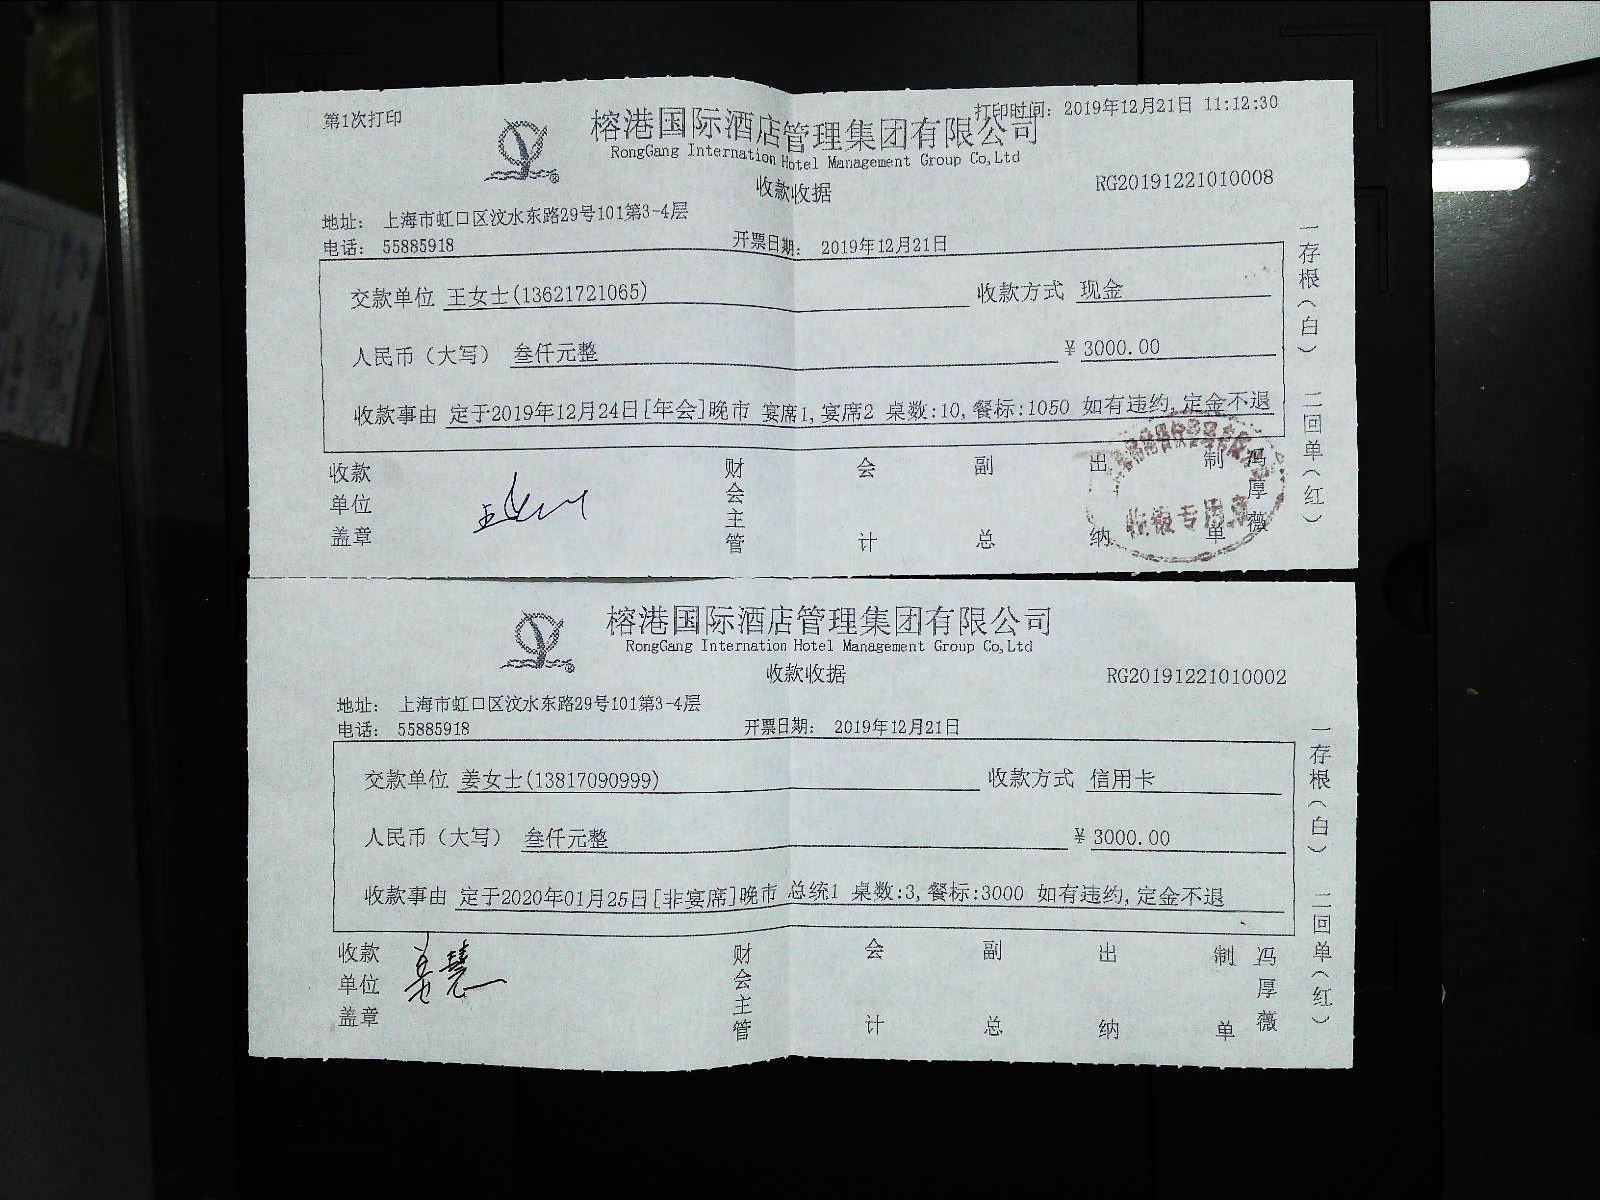 第1次打印
打印时间： 2019年12月21日 11:12:30
榕港国际酒店管理集团有限公司
RongGang Internation Hotel Management Group Co,Ltd
收款收据
RG20191221010008
地址： 上海市虹口区汶水东路29号101第3-4层
电话： 55885918
开票日期： 2019年12月21日
交款单位 王女士(13621721065) 收款方式 现金
人民币（大写） 叁仟元整 ￥3000.00
收款事由 定于2019年12月24日[年会]晚市 宴席1,宴席2 桌数:10,餐标:1050 如有违约,定金不退
收款单位盖章
财会主管
会计
副总
出纳
制单
冯厚薇
专用章
一存根（白） 二回单（红）
榕港国际酒店管理集团有限公司
RongGang Internation Hotel Management Group Co,Ltd
收款收据
RG20191221010002
地址： 上海市虹口区汶水东路29号101第3-4层
电话： 55885918
开票日期： 2019年12月21日
交款单位 姜女士(13817090999) 收款方式 信用卡
人民币（大写） 叁仟元整 ￥3000.00
收款事由 定于2020年01月25日[非宴席]晚市 总统1 桌数:3,餐标:3000 如有违约,定金不退
收款单位盖章
姜慧
财会主管
会计
副总
出纳
制单
冯厚薇
一存根（白） 二回单（红）